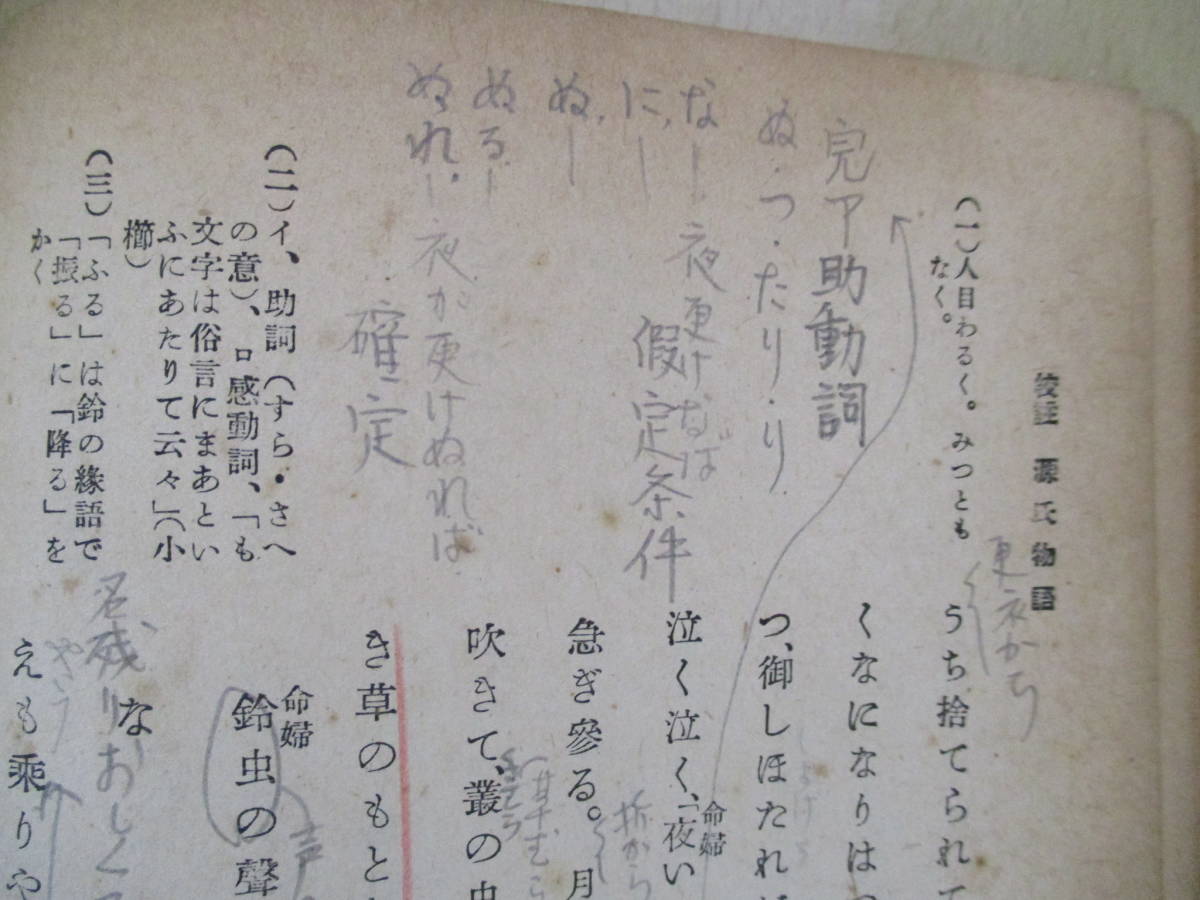 校註 源氏物語
(一)人目わるく。みつとも
なく。
完了助動詞
ぬ・つ・たり・り
な― 夜更けなば
假定条件
に―
ぬ―
ぬる―
ぬれ― 夜が更けぬれば
確定
(二)イ、助詞(すら・さへ
の意)、ロ感動詞、「も
文字は俗言にまあとい
ふにあたりて云々」(小
櫛)
(三)「ふる」は鈴の緣語で
「振る」に「降る」を
かく
更衣から
うち捨てられて
くなになりは
つ、御しほたれ
命婦
泣く泣く、「夜い
急ぎ參る。月
折から
吹きて、叢の虫
草むら
き草のもと
命婦
鈴虫の聲
声
な
名残りおしく
えも乘りや